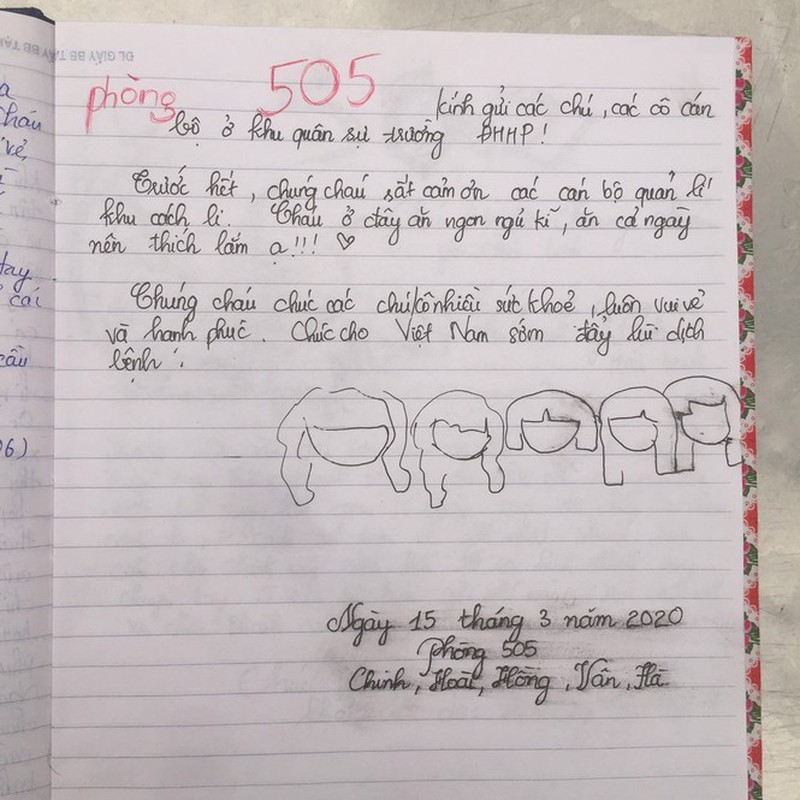 phòng 505
kính gửi các chú, các cô cán
bộ ở khu quân sự trường ĐHHP!
Trước hết, chúng cháu rất cảm ơn các cán bộ quản lí
khu cách li. Cháu ở đây ăn ngon ngủ kĩ, ăn cả ngày
nên thích lắm ạ!!! ♡
Chúng cháu chúc các chú/cô nhiều sức khoẻ, luôn vui vẻ
và hạnh phúc. Chúc cho Việt Nam sớm đẩy lùi dịch
bệnh!
Ngày 15 tháng 3 năm 2020
Phòng 505
Chinh, Hoài, Hồng, Vân, Hà